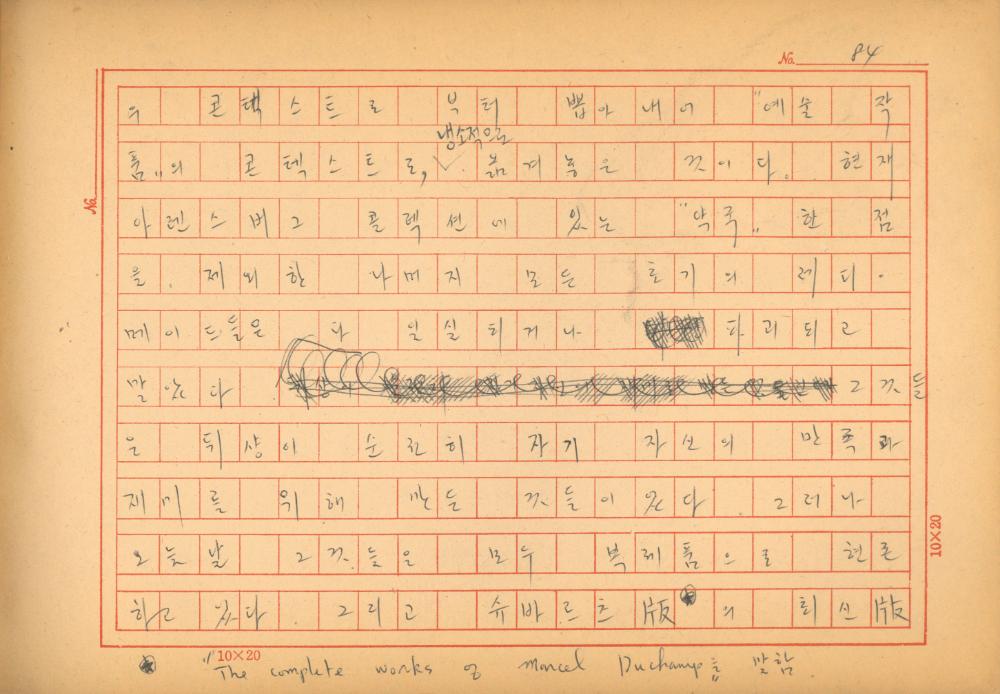 No. 84
의 콘텍스트로 부터 뽑아 내어 "예술 작
냉소적으로
품"의 콘텍스트로, 옮겨 놓은 것이다. 현재
No.
아렌스버그 콜렉션에 있는 "약국" 한 점
을 제외한 나머지 모든 초기의 레디·
메이드들은 다 일실되거나 파괴되고
말았다 그것들
은 뒤샹이 순전히 자기 자신의 만족과
재미를 위해 만든 것들이었다 그러나
오늘날 그것들은 모두 복제품으로 현존
하고 있다 그리고 슈바르츠 版 의 최신版
10×20
10×20
"The complete works of Marcel Duchamp"를 말함